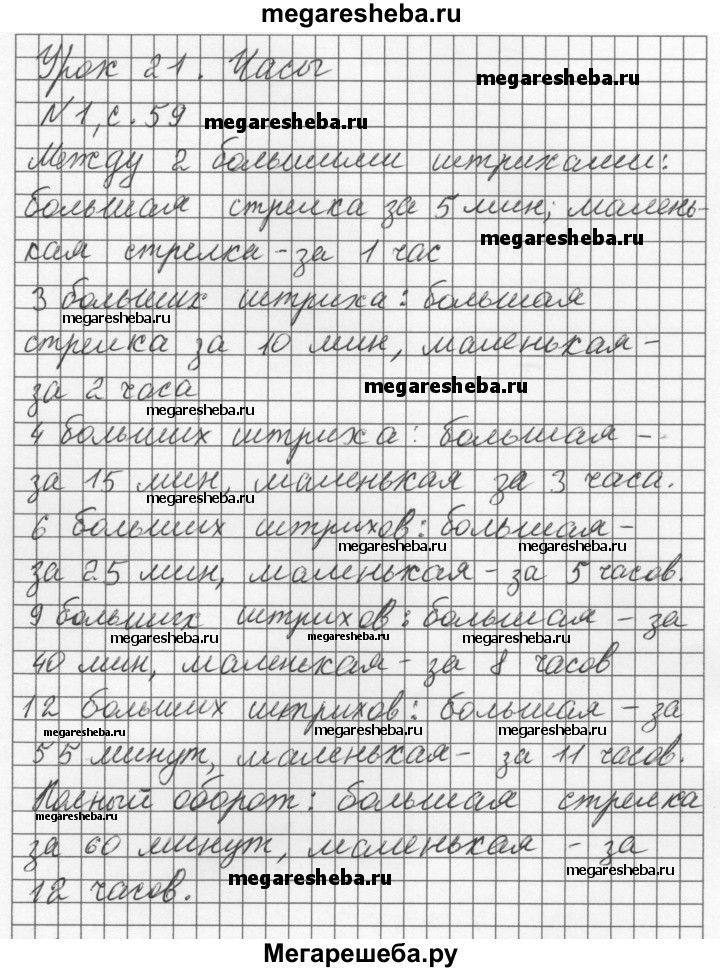 megaresheba.ru
Урок 21. Часы
megaresheba.ru
N 1, с. 59
megaresheba.ru
Между 2 большими штрихами:
большая стрелка за 5 мин; малень-
megaresheba.ru
кая стрелка - за 1 час
3 больших штриха: большая
megaresheba.ru
стрелка за 10 мин, маленькая -
за 2 часа
megaresheba.ru
megaresheba.ru
4 больших штриха: большая -
за 15 мин, маленькая за 3 часа.
megaresheba.ru
6 больших штрихов: большая -
megaresheba.ru
megaresheba.ru
за 25 мин, маленькая - за 5 часов.
9 больших штрихов: большая - за
megaresheba.ru
megaresheba.ru
megaresheba.ru
40 мин, маленькая - за 8 часов
12 больших штрихов: большая - за
megaresheba.ru
megaresheba.ru
megaresheba.ru
55 минут, маленькая - за 11 часов.
Полный оборот: большая стрелка
megaresheba.ru
за 60 минут, маленькая - за
megaresheba.ru
12 часов.
megaresheba.ru
Мегарешеба.ру